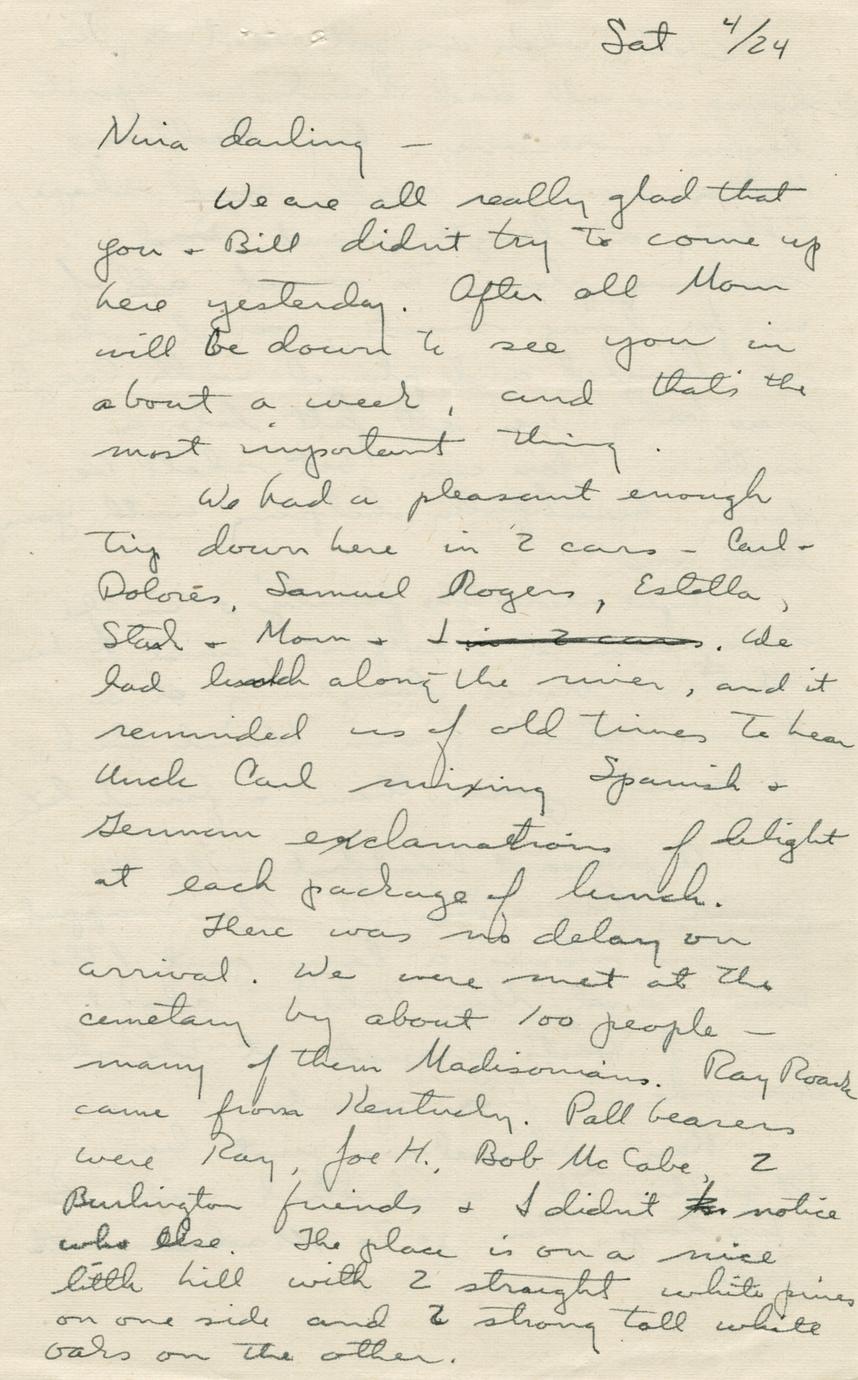 Sat 4/24
Nina darling —
We are all really glad that
you + Bill didn't try to come up
here yesterday. After all Mom
will be down to see you in
about a week, and that's the
most important thing.
We had a pleasant enough
trip down here in 2 cars - Carl +
Dolores, Samuel Rogers, Estella,
Starker + Mom + I in 2 cars. We
had lunch along the river, and it
reminded us of old times to hear
Uncle Carl mixing Spanish +
German exclamations of delight
at each package of lunch.
There was no delay on
arrival. We were met at the
cemetary by about 100 people —
many of them Madisonians. Ray Roark
came from Kentucky. Pall bearers
were Ray, Joe H., Bob McCabe, 2
Burlington friends + I didn't notice
who else. The place is on a nice
little hill with 2 straight white pines
on one side and 2 strong tall white
oaks on the other.